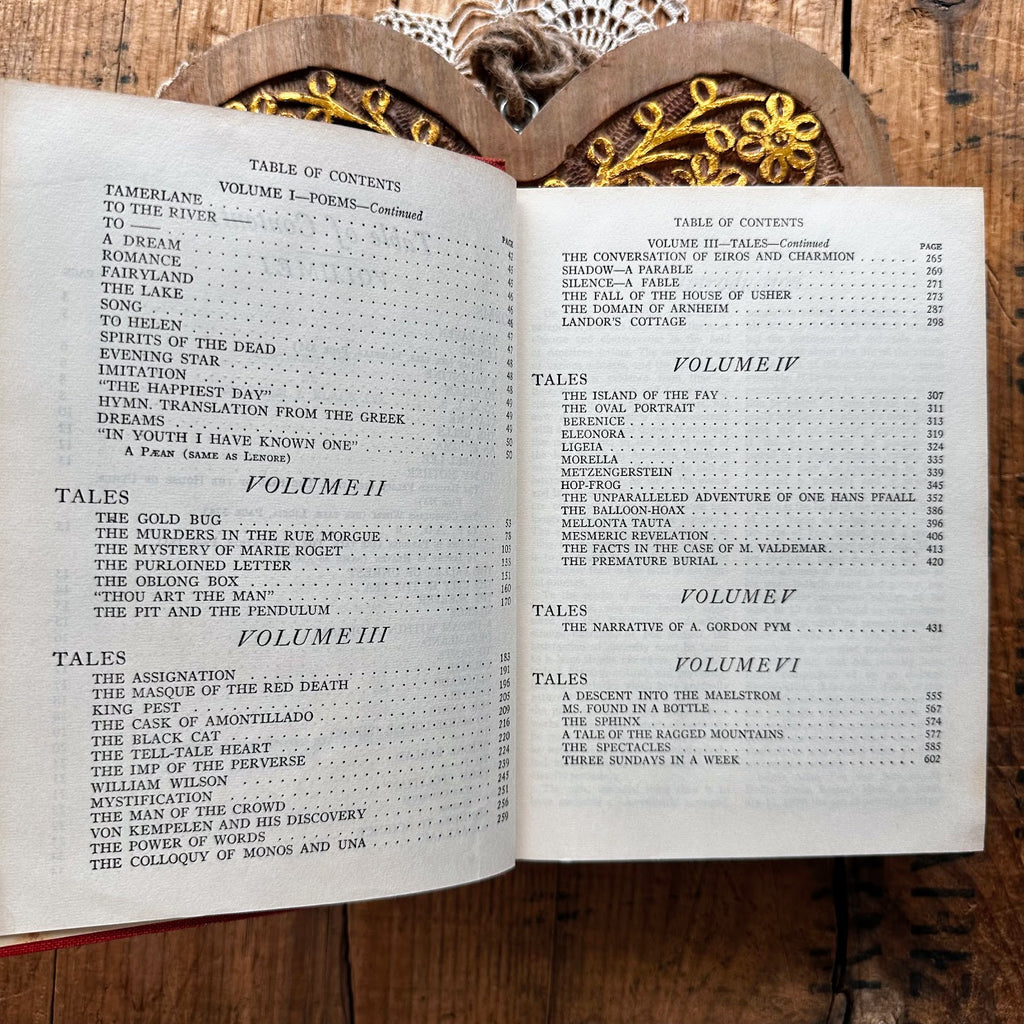 TABLE OF CONTENTS
VOLUME I—POEMS—Continued
PAGE
TAMERLANE 42
TO THE RIVER —— 43
TO —— 45
A DREAM 45
ROMANCE 46
FAIRYLAND 46
THE LAKE 46
SONG 47
TO HELEN 47
SPIRITS OF THE DEAD 48
EVENING STAR 48
IMITATION 49
"THE HAPPIEST DAY" 49
HYMN. TRANSLATION FROM THE GREEK 49
DREAMS 50
"IN YOUTH I HAVE KNOWN ONE" 50
A PÆAN (SAME AS LENORE)
VOLUME II
TALES
THE GOLD BUG 53
THE MURDERS IN THE RUE MORGUE 78
THE MYSTERY OF MARIE ROGET 105
THE PURLOINED LETTER 133
THE OBLONG BOX 151
"THOU ART THE MAN" 160
THE PIT AND THE PENDULUM 170
VOLUME III
TALES
THE ASSIGNATION 183
THE MASQUE OF THE RED DEATH 191
KING PEST 196
THE CASK OF AMONTILLADO 205
THE BLACK CAT 209
THE TELL-TALE HEART 216
THE IMP OF THE PERVERSE 220
WILLIAM WILSON 224
MYSTIFICATION 239
THE MAN OF THE CROWD 245
VON KEMPELEN AND HIS DISCOVERY 251
THE POWER OF WORDS 256
THE COLLOQUY OF MONOS AND UNA 259
TABLE OF CONTENTS
VOLUME III—TALES—Continued
PAGE
THE CONVERSATION OF EIROS AND CHARMION 265
SHADOW—A PARABLE 269
SILENCE—A FABLE 271
THE FALL OF THE HOUSE OF USHER 273
THE DOMAIN OF ARNHEIM 287
LANDOR'S COTTAGE 298
VOLUME IV
TALES
THE ISLAND OF THE FAY 307
THE OVAL PORTRAIT 311
BERENICE 313
ELEONORA 319
LIGEIA 324
MORELLA 335
METZENGERSTEIN 339
HOP-FROG 345
THE UNPARALLELED ADVENTURE OF ONE HANS PFAALL 352
THE BALLOON-HOAX 386
MELLONTA TAUTA 396
MESMERIC REVELATION 406
THE FACTS IN THE CASE OF M. VALDEMAR 413
THE PREMATURE BURIAL 420
VOLUME V
TALES
THE NARRATIVE OF A. GORDON PYM 431
VOLUME VI
TALES
A DESCENT INTO THE MAELSTROM 555
MS. FOUND IN A BOTTLE 567
THE SPHINX 574
A TALE OF THE RAGGED MOUNTAINS 577
THE SPECTACLES 585
THREE SUNDAYS IN A WEEK 602